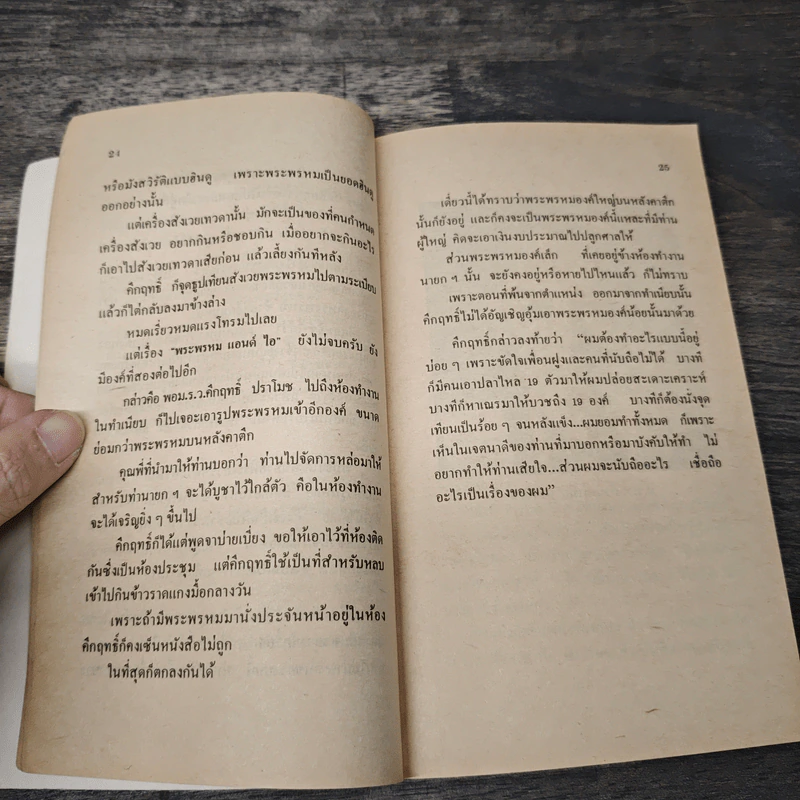 24
หรือมังสวิรัติแบบฮินดู เพราะพระพรหมเป็นยอดฮินดู
ออกอย่างนั้น
แต่เครื่องสังเวยเทวดานั้น มักจะเป็นของที่คนกำหนด
เครื่องสังเวย อยากกินหรือชอบกิน เมื่ออยากจะกินอะไร
ก็เอาไปสังเวยเทวดาเสียก่อน แล้วเลี้ยงกันทีหลัง
คึกฤทธิ์ ก็จุดธูปเทียนสังเวยพระพรหมไปตามระเบียบ
แล้วก็ไต่กลับลงมาข้างล่าง
หมดเรี่ยวหมดแรงโทรมไปเลย
แต่เรื่อง “พระพรหม แอนด์ ไอ” ยังไม่จบครับ ยัง
มีองค์ที่สองต่อไปอีก
กล่าวคือ พอม.ร.ว.คึกฤทธิ์ ปราโมช ไปถึงห้องทำงาน
ในทำเนียบ ก็ไปเจอะเอารูปพระพรหมเข้าอีกองค์ ขนาด
ย่อมกว่าพระพรหมบนหลังคาตึก
คุณพี่ที่นำมาให้ท่านบอกว่า ท่านไปจัดการหล่อมาให้
สำหรับท่านายก ฯ จะได้บูชาไว้ใกล้ตัว คือในห้องทำงาน
จะได้เจริญยิ่ง ๆ ขึ้นไป
คึกฤทธิ์ก็ได้แต่พูดจาบ่ายเบี่ยง ขอให้เอาไว้ที่ห้องติด
กันซึ่งเป็นห้องประชุม แต่คึกฤทธิ์ใช้เป็นที่สำหรับหลบ
เข้าไปกินข้าวราดแกงมื้อกลางวัน
เพราะถ้ามีพระพรหมมานั่งประจันหน้าอยู่ในห้อง
คึกฤทธิ์ก็คงเซ็นหนังสือไม่ถูก
ในที่สุดก็ตกลงกันได้
25
เดี๋ยวนี้ได้ทราบว่าพระพรหมองค์ใหญ่บนหลังคาตึก
นั้นก็ยังอยู่ และก็คงจะเป็นพระพรหมองค์นี้แหละที่มีท่าน
ผู้ใหญ่ คิดจะเอาเงินงบประมาณไปปลูกศาลให้
ส่วนพระพรหมองค์เล็ก ที่เคยอยู่ข้างห้องทำงาน
นายก ฯ นั้น จะยังคงอยู่หรือหายไปไหนแล้ว ก็ไม่ทราบ
เพราะตอนที่พ้นจากตำแหน่ง ออกมาจากทำเนียบนั้น
คึกฤทธิ์ไม่ได้อัญเชิญอุ้มเอาพระพรหมองค์น้อยนั้นมาด้วย
คึกฤทธิ์กล่าวลงท้ายว่า “ผมต้องทำอะไรแบบนี้อยู่
บ่อย ๆ เพราะขัดใจเพื่อนฝูงและคนที่นับถือไม่ได้ บางที
ก็มีคนเอาปลาไหล 19 ตัวมาให้ผมปล่อยสะเดาะเคราะห์
บางทีก็หาเณรมาให้บวชถึง 19 องค์ บางทีก็ต้องนั่งจุด
เทียนเป็นร้อย ๆ จนหลังแข็ง...ผมยอมทำทั้งหมด ก็เพราะ
เห็นในเจตนาดีของท่านที่มาบอกหรือมาบังคับให้ทำ ไม่
อยากทำให้ท่านเสียใจ...ส่วนผมจะนับถืออะไร เชื่อถือ
อะไรเป็นเรื่องของผม”